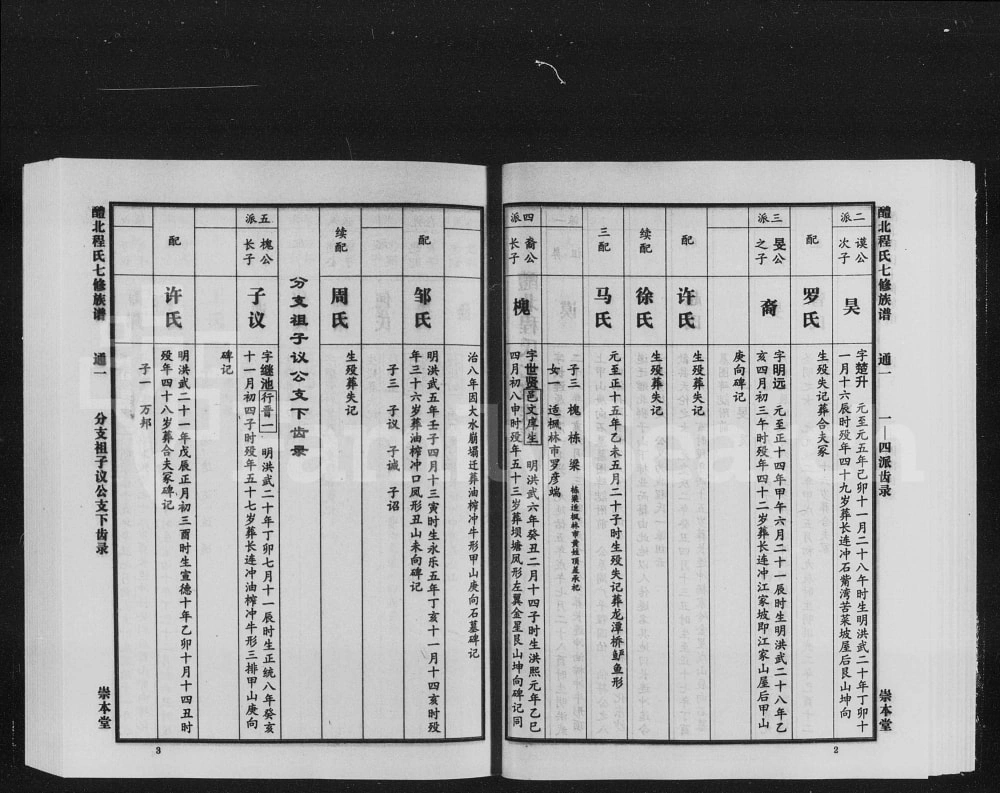 醴北程氏七修族谱
通一
一—四派齿录
崇本堂
2
二派
谟公次子
昊
字楚升 元至元五年己卯十一月二十八年时生明洪武二十年丁卯十
一月十六辰时殁年四十九岁葬长连冲石觜湾苦菜坡屋后艮山坤向
配
罗氏
生殁失记葬合夫冢
三派
昊公之子
裔
字明远 元至正十四年甲午六月二十一辰时生明洪武二十八年乙
亥四月初三午时殁年四十二岁葬长连冲江家坡即江家山屋后甲山
庚向碑记
配
许氏
生殁葬失记
续配
徐氏
生殁葬失记
三配
马氏
元至正十五年乙未五月二十子时生殁失记葬龙潭桥鲈鱼形
子三 槐 栋 梁 栋梁迁枫林市黄姓顶差承祀
女一 适枫林市罗彦端
四派
裔公长子
槐
字世贤邑文庠生 明洪武六年癸丑二月十四子时生洪熙元年乙巳
四月初八申时殁年五十三岁葬坝塘凤形左翼金星艮山坤向碑记同
治八年因大水崩塌迁葬油榨冲牛形甲山庚向石墓碑记
配
邹氏
明洪武五年壬子四月十三寅时生永乐五年丁亥十一月十四亥时殁
年三十六岁葬油榨冲口凤形丑山未向碑记
子三 子议 子诚 子诏
续配
周氏
生殁葬失记
分支祖子议公支下齿录
五派
槐公长子
子议
字继池行晋一 明洪武二十年丁卯七月十一辰时生正统八年癸亥
十一月初四子时殁年五十七岁葬长连冲油榨冲牛形三排甲山庚向
碑记
配
许氏
明洪武二十一年戊辰正月初三酉时生宣德十年乙卯十月十四丑时
殁年四十八岁葬合夫冢碑记
子一 万邦
醴北程氏七修族谱
通一
分支祖子议公支下齿录
崇本堂
3